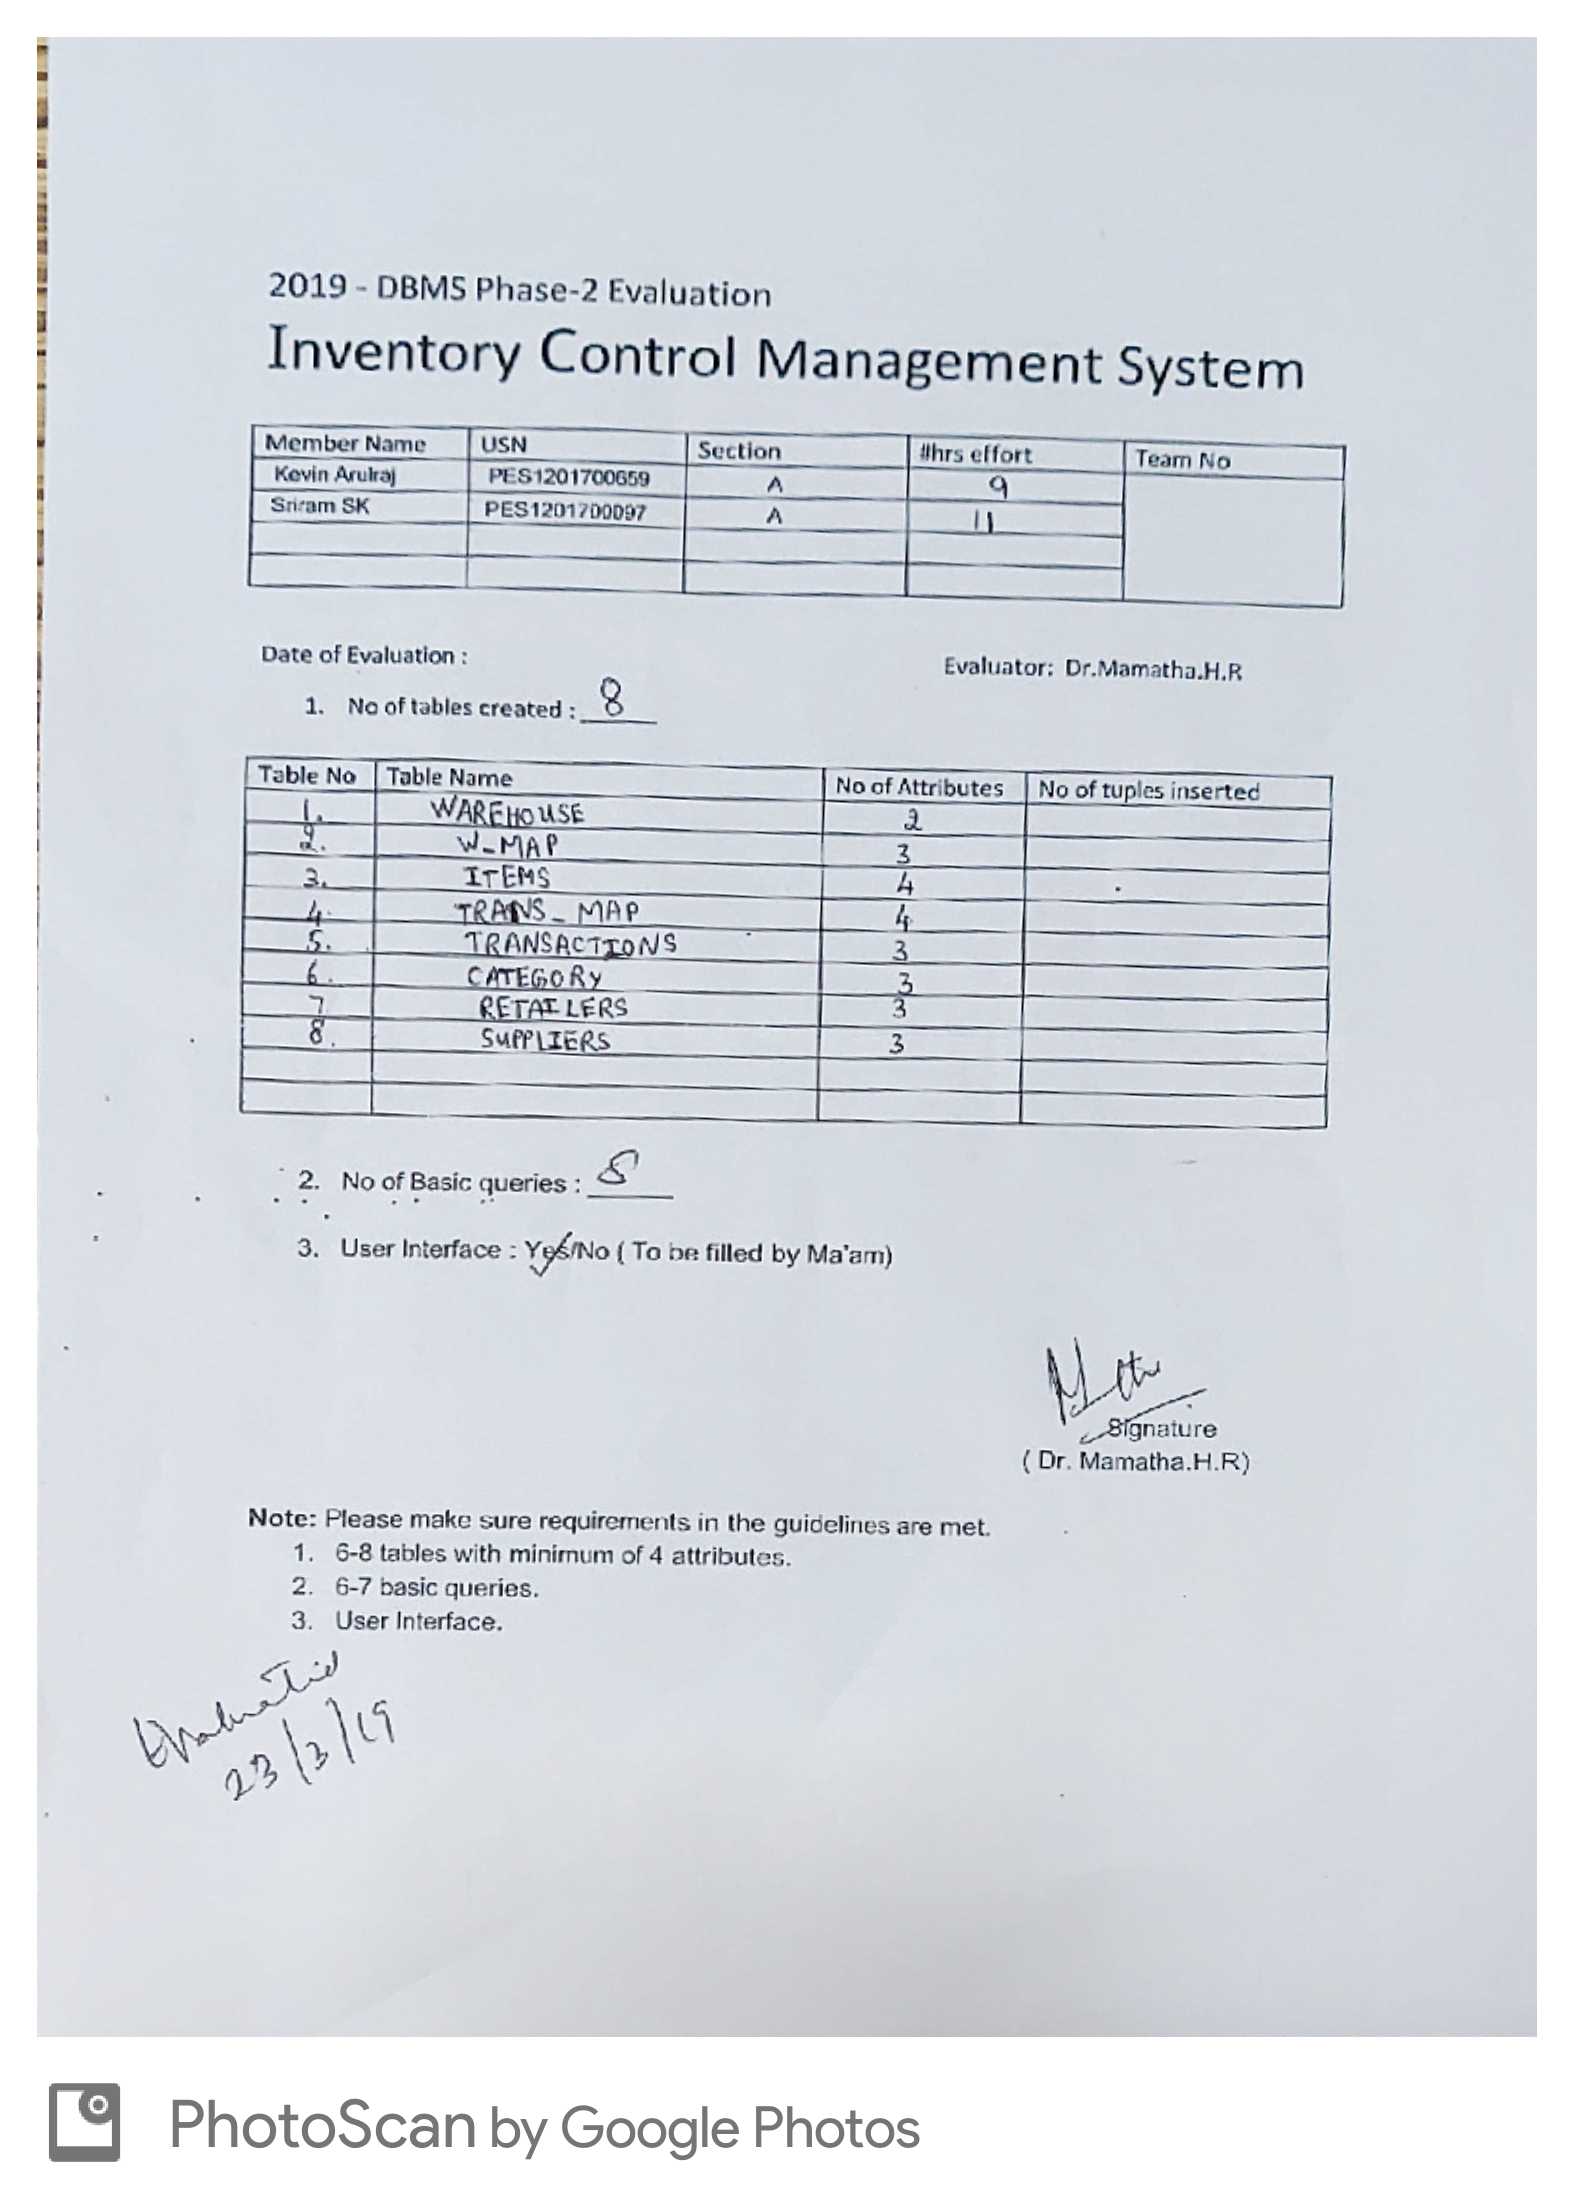 2019 - DBMS Phase-2 Evaluation
Inventory Control Management System
Member Name USN Section #hrs effort Team No
Kevin Arulraj PES1201700659 A 9
Sriram SK PES1201700097 A 11
Date of Evaluation :
Evaluator: Dr.Mamatha.H.R
1. No of tables created : 8
Table No Table Name No of Attributes No of tuples inserted
1. WAREHOUSE 2
2. W_MAP 3
3. ITEMS 4
4. TRANS_MAP 4
5. TRANSACTIONS 3
6. CATEGORY 3
7 RETAILERS 3
8. SUPPLIERS 3
2. No of Basic queries : 8
3. User Interface : Yes/No ( To be filled by Ma'am)
Signature
( Dr. Mamatha.H.R)
Note: Please make sure requirements in the guidelines are met.
1. 6-8 tables with minimum of 4 attributes.
2. 6-7 basic queries.
3. User Interface.
Evaluated
23/3/19
PhotoScan by Google Photos